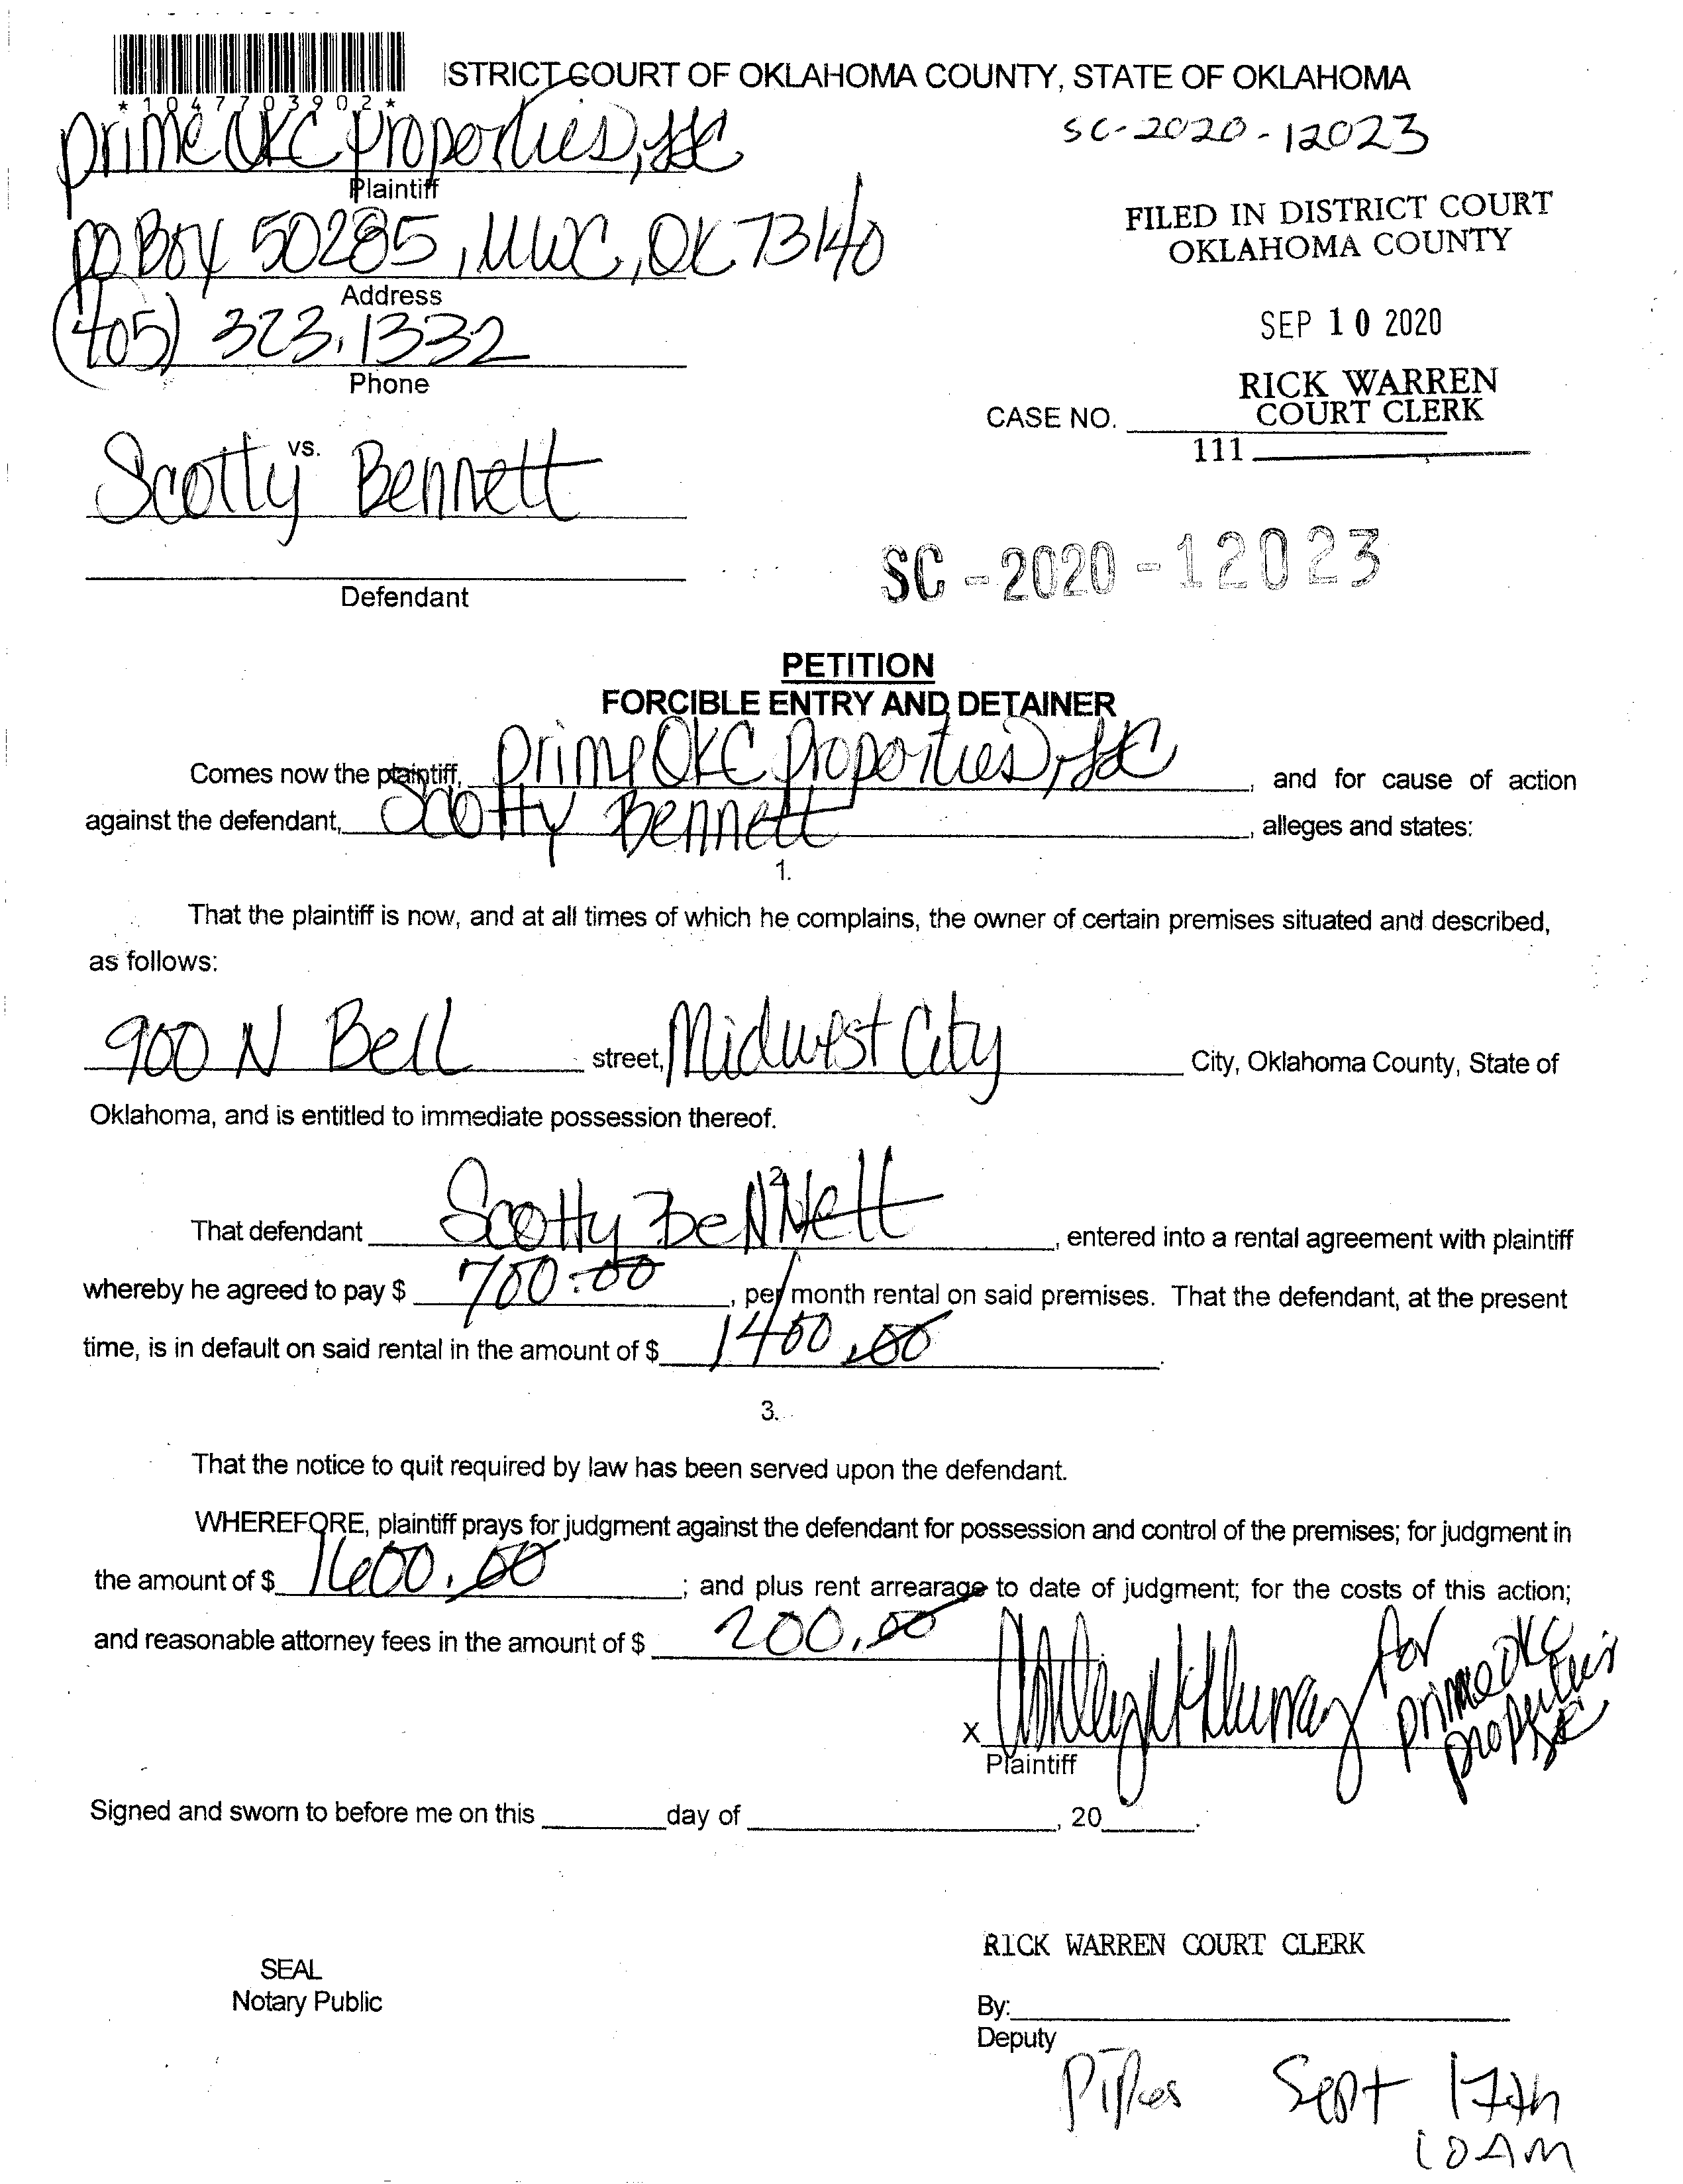 ISTRICT COURT OF OKLAHOMA COUNTY, STATE OF OKLAHOMA
*1047703902*
Prime OKC Properties, LLC
SC-2020-12023
Plaintiff
PO Box 50285, MWC, OK 73140
FILED IN DISTRICT COURT
OKLAHOMA COUNTY
Address
(405) 323.1332
SEP 10 2020
Phone
RICK WARREN
COURT CLERK
CASE NO.
111
vs.
Scotty Bennett
SC-2020-12023
Defendant
PETITION
FORCIBLE ENTRY AND DETAINER
Comes now the plaintiff, Prime OKC Properties, LLC, and for cause of action
against the defendant, Scotty Bennett, alleges and states:
1.
That the plaintiff is now, and at all times of which he complains, the owner of certain premises situated and described,
as follows:
900 N Bell street, Midwest City City, Oklahoma County, State of
Oklahoma, and is entitled to immediate possession thereof.
2
That defendant Scotty Bennett, entered into a rental agreement with plaintiff
whereby he agreed to pay $ 700.00, per month rental on said premises. That the defendant, at the present
time, is in default on said rental in the amount of $ 1400.00.
3.
That the notice to quit required by law has been served upon the defendant.
WHEREFORE, plaintiff prays for judgment against the defendant for possession and control of the premises; for judgment in
the amount of $ 1600.00; and plus rent arrearage to date of judgment; for the costs of this action;
and reasonable attorney fees in the amount of $ 200.00
X for Prime OKC Properties LLC
Plaintiff
Signed and sworn to before me on this day of , 20 .
RICK WARREN COURT CLERK
SEAL
Notary Public
By:
Deputy
Sept 17th
10AM